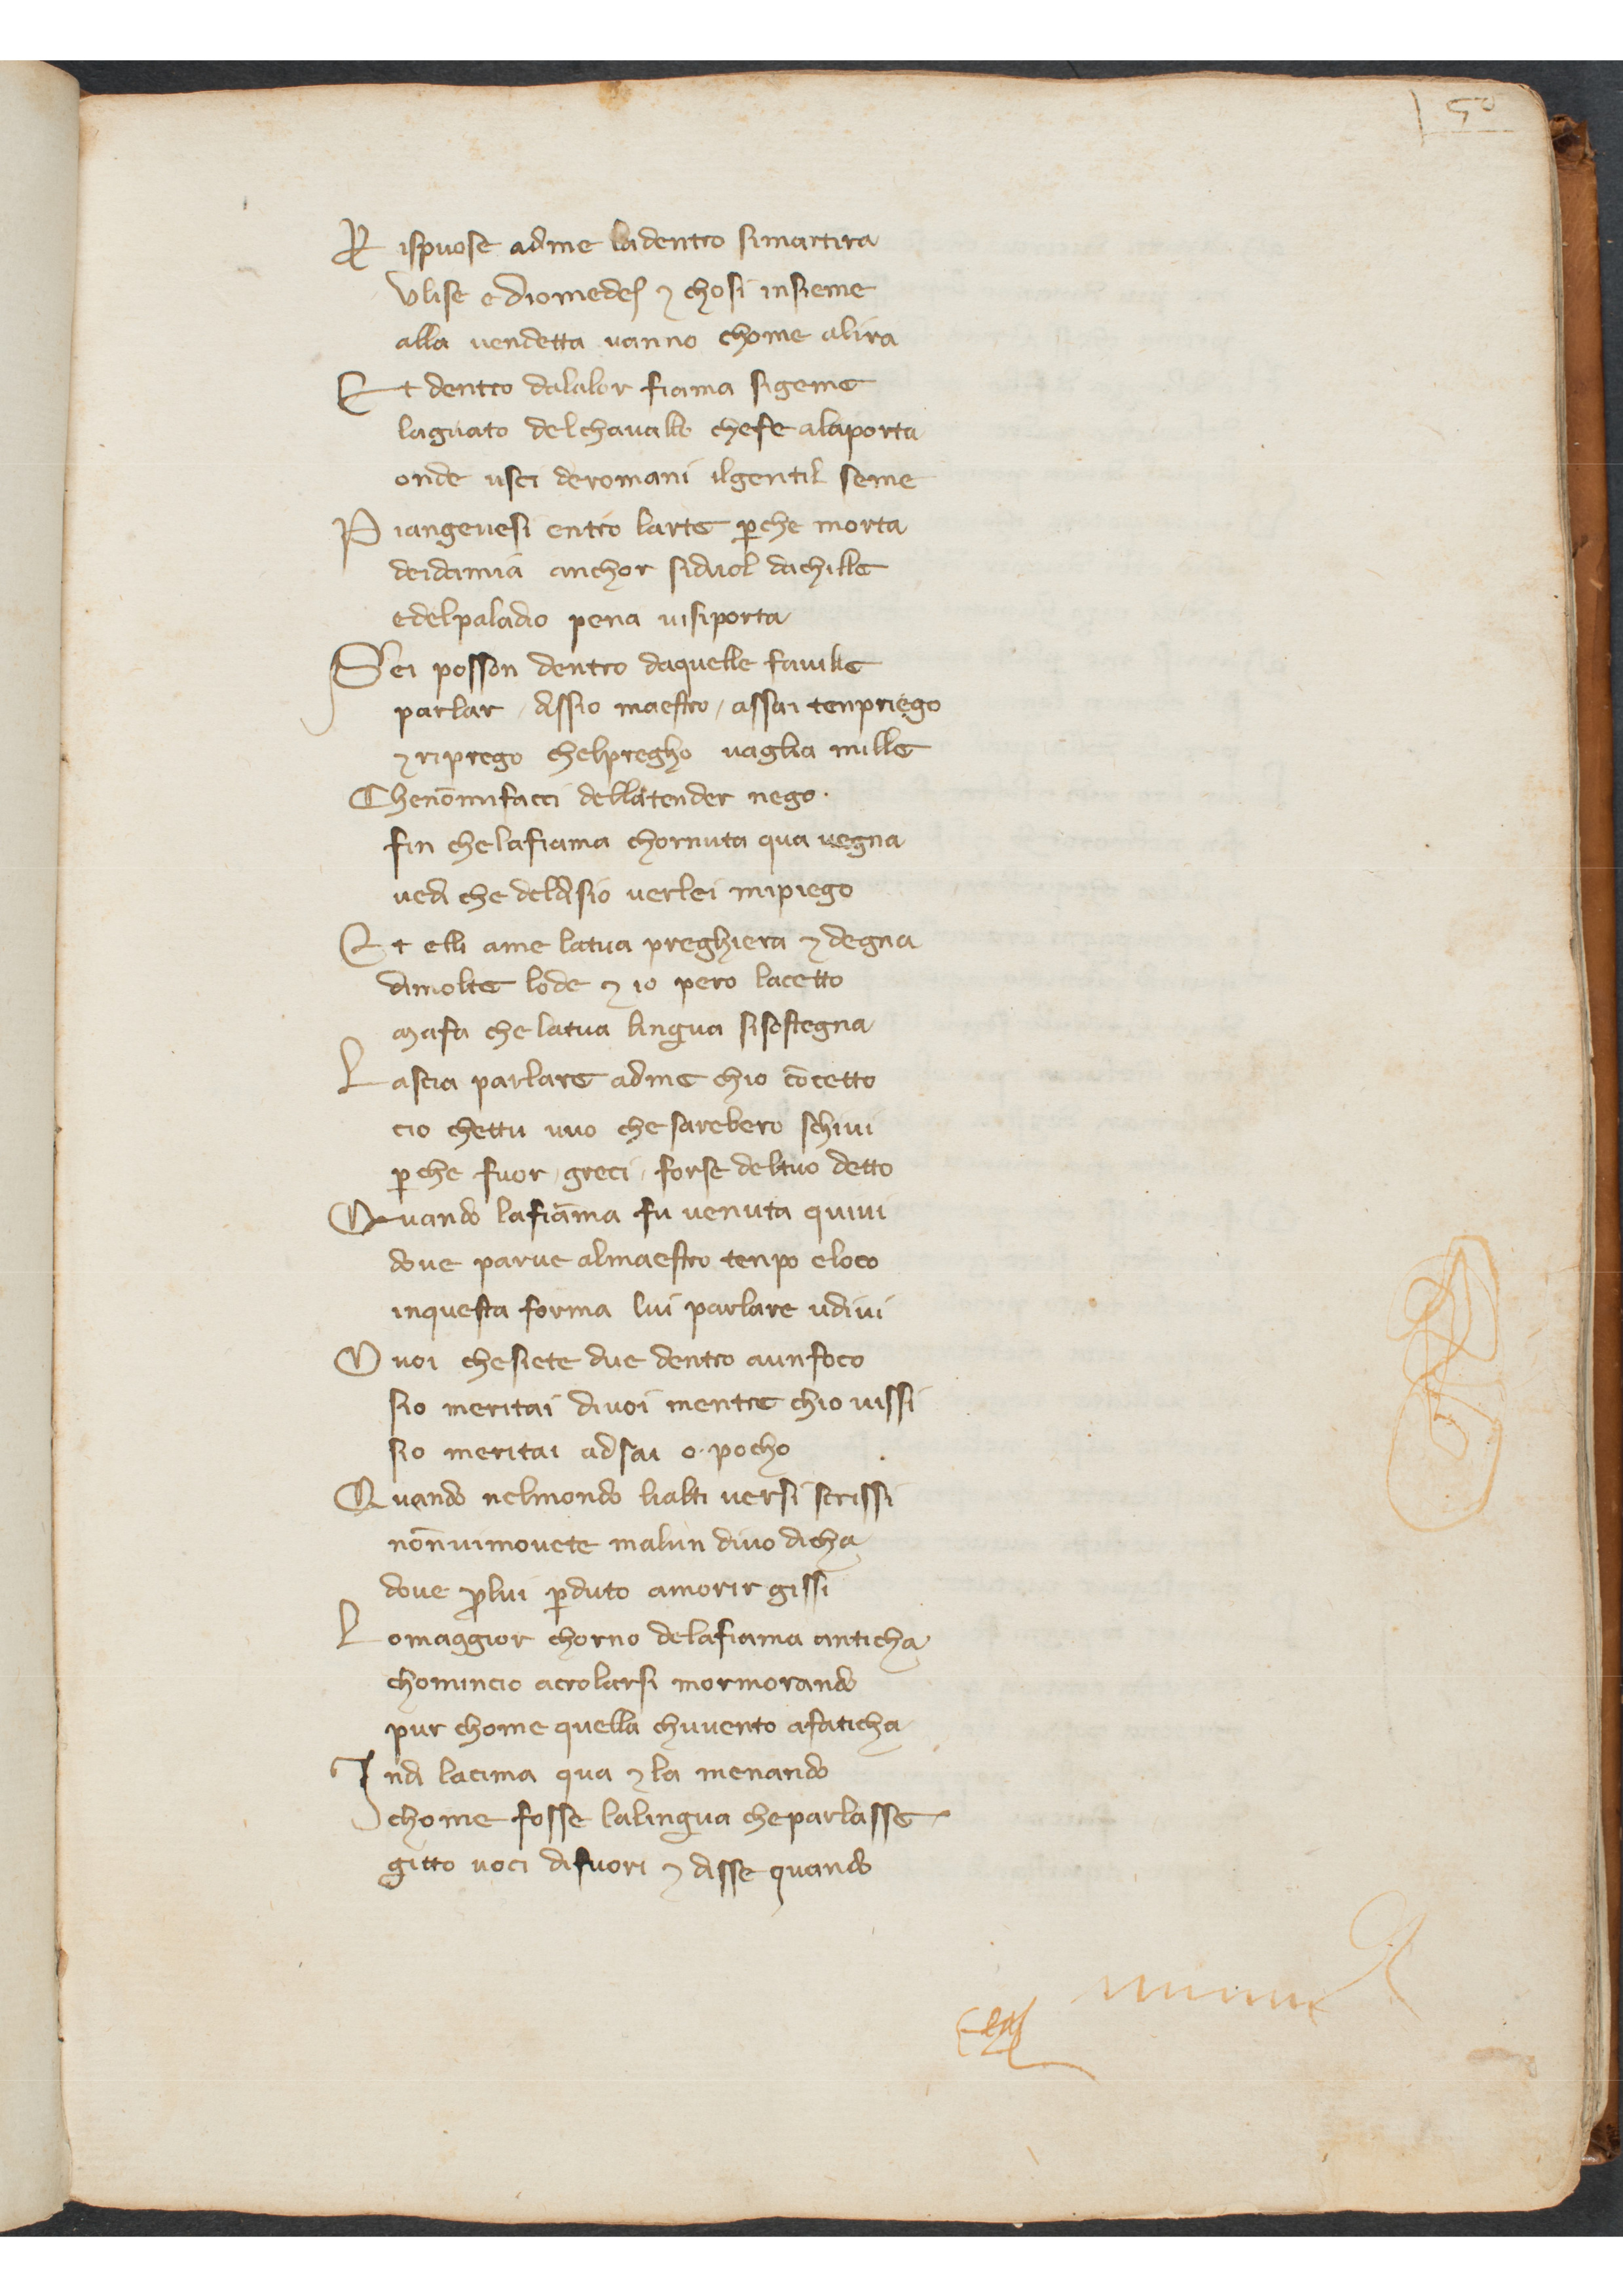 50
Rispuose adme ladentro simartira
Vlise e diomedes ⁊ chosi insieme
alla uendetta uanno chome alira
Et dentro dalalor fiama sigeme
laguato delchauallo chefe alaporta
onde usci deromani ilgentil seme
Piangeuesi entro larte ꝑche morta
deidamia anchor siduol dachille
edelpaladio pena uisiporta
Sei posson dentro daquelle fauille
parlar / dissio maestro / assai tenpriego
⁊ riprego chelpregho uaglia mille
Chenōmifacci dellatender nego ·
fin chelafiama chornuta qua uegna
uedi che deldisio uerlei mipiego
Et elli ame latua preghiera ⁊ degna
dimolte lode ⁊ io pero lacetto
mafa che latua lingua sisostegna
Lascia parlare adme chio cōcetto
cio chettu uuo che sarebero schiui
ꝑche fuor / greci / forse deltuo detto
Quando lafiāma fu uenuta quiui
doue parue almaestro tenpo eloco
inquesta forma lui parlare udiui
O uoi chesiete due dentro aunfoco
sio meritai diuoi mentre chio uissi
sio meritai adsai o · pocho
Quando nelmondo lialti uersi scrissi
nōnuimouete malun diuo dicha
doue ꝓlui ꝑduto amorir gissi
Lomaggior chorno delafiama anticha
chomincio acrolarsi mormorando
pur chome quella chuuento afaticha
Indi lacima qua ⁊ la menando
chome fosse lalingua cheparlasse
gitto uoci difuori ⁊ disse quando